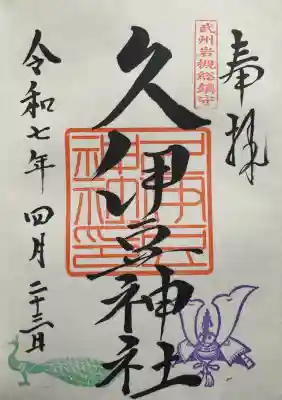 奉拝
武州岩槻総鎮守
久伊豆神社
令和七年四月二十三日